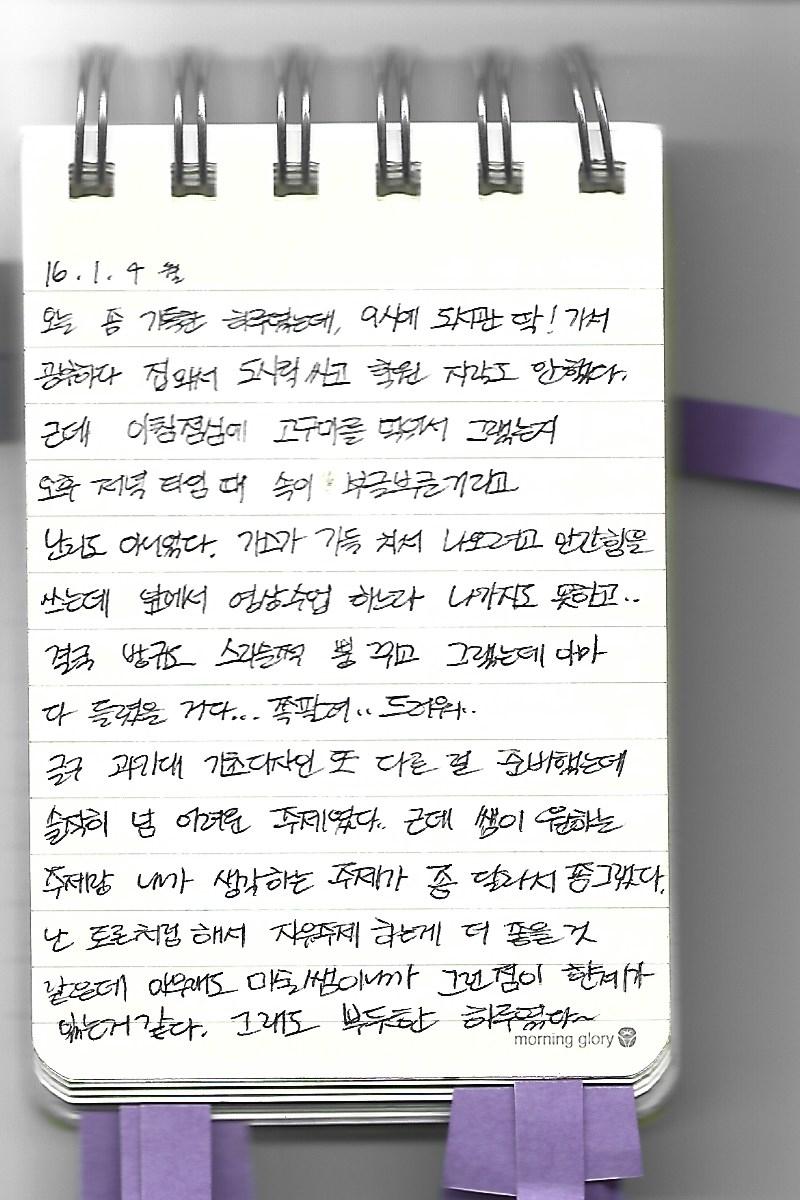 16. 1. 4 월
오늘 좀 기특한 하루였는데, 9시에 도서관 딱! 가서
공부하다 집와서 도시락 싸고 학원 지각도 안했다.
근데 아침점심에 고구마를 먹어서 그랬는지
오후 저녁 타임 때 속이 부글부글거리고
난리도 아니었다. 가스가 가득 차서 나오려고 안간힘을
쓰는데 앞에서 영상수업 하느라 나가지도 못하고..
결국 방귀도 스리슬쩍 뿡 뀌고 그랬는데 아마
다 들렸을 거다... 쪽팔려.. 드러워..
글구 과기대 기초디자인 또 다른 걸 준비했는데
솔직히 넘 어려운 주제였다. 근데 쌤이 원하는
주제랑 내가 생각하는 주제가 좀 달라서 좀그랬다.
난 토론처럼 해서 자유주제 하는게 더 좋을 것
같은데 아무래도 미술쌤이니까 그런 점이 한계가
있는거 같다. 그래도 뿌듯한 하루였다~
morning glory